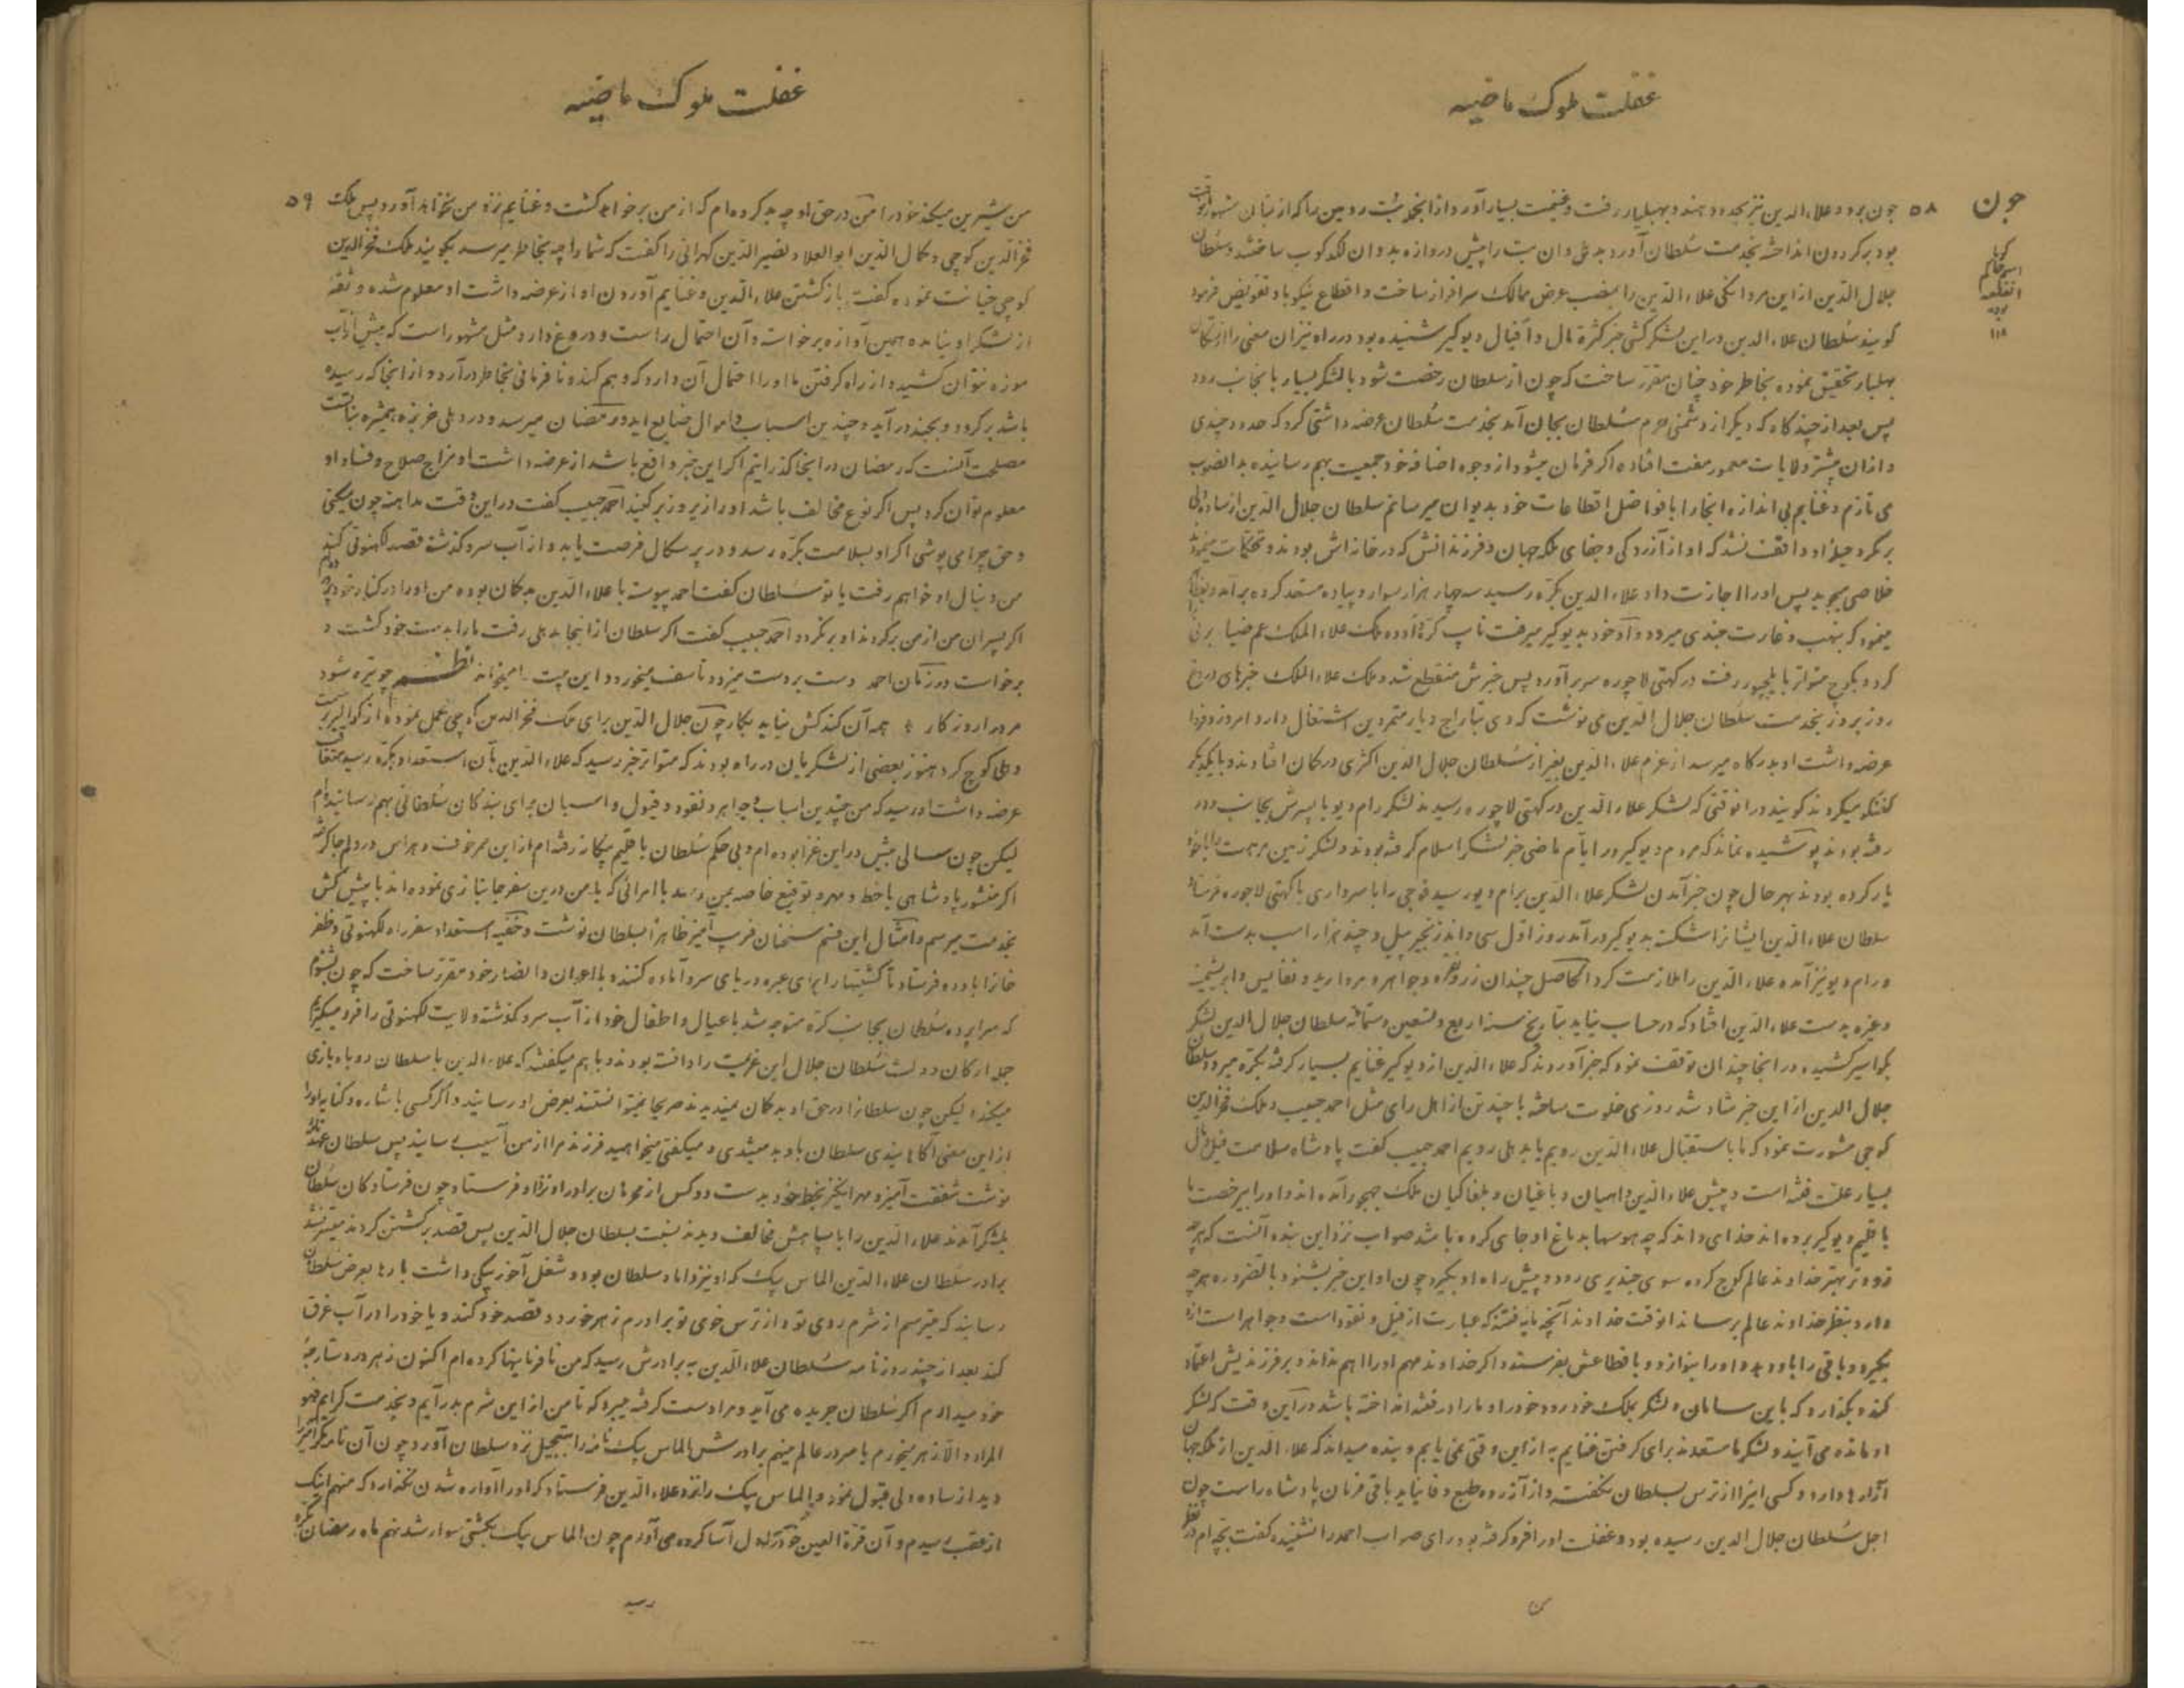 غفلت ملوک ماضیه
۵۸
جون
جون برود علاء الدین نیز بحدود هند و بهیلسا رفت و غنیمت بسیار آورد و از انجمله بت رومین را که از
بود بر گردون انداخته بخدمت سلطان آورد بدهلی و ان بت را پیش دروازه بدوان لکد کوب ساختند و سلطان
جلال الدین از این مردانکی علاء الدین را بمنصب عرض ممالک سرافراز ساخت و اقطاع نیکو باو تفویض فرمود
کویند سلطان علاء الدین در این لشکر کشی خبر کثرة مال و افیال دیوکیر شنیده بود در راه نیز ان معنی را از
تحقیق نموده بخاطر خود چنان مقرر ساخت که چون از سلطان رخصت شود با لشکر بسیار بانجانب رود
پس بعد از چند کاه که دیکر از دشمنی حرم سلطان بجان آمد بخدمت سلطان عرضه داشتی کرد که حدود چندی
و ازان پیشتر ولایات معمور مفت افتاده اکر فرمان میشود از وجوه اضافه خود جمعیت بهم رسانیده بدانصوب
می تازم و غنایم بی اندازه انجا را با فواضل اقطاعات خود بدیوان میرسانم سلطان جلال الدین از ساده دلی
واقف نشد که او از آزردکی و جفای ملکه جهان و فرزندانش که در خانه اش بودند
خلاصی میجوید پس اورا اجازت داد علاء الدین بکره رسید سه چهار هزار سوار و پیاده مستعد کرده برآمد و
مینمود که بنهب و غارت چندی میرود و او خود بدیوکیر میرفت نایب کره و اوده ملک علاء الملک عم ضیا برنی
کرد و بکوچ متواتر بایلچپور رفت در کهتی لاجوره سر برآورد پس خبرش منقطع شد و ملک علاء الملک خبرهای دروغ
روز بروز بخدمت سلطان جلال الدین می نوشت که وی بتاراج دیار متمردین اشتغال دارد امروز و فردا
عرضه داشت او بدرکاه میرسد از عزم علاء الدین بغیر از سلطان جلال الدین اکثری در کمان افتادند و با یکدیکر
کفتکو میکردند کویند در انوقتی که لشکر علاء الدین در کهتی لاجوره رسیدند لشکر رام دیو با پسرش بجانب دور
رفته بودند پوشیده نماند که مردم دیوکیر در ایام ماضی خبر لشکر اسلام کرفته بودند و لشکر زمین مرهت را با خود
یار کرده بودند بهر حال چون خبر آمدن لشکر علاء الدین برام دیو رسید فوجی را با سرداری با کهتی لاجوره فرستاد
سلطان علاء الدین ایشانرا شکسته بدیوکیر درآمد روز اول سی و اند زنجیر پیل و چند هزار اسب بدست آمد
و رام دیو نیز آمده علاء الدین را ملازمت کرد الحاصل چندان زر و نقره و جواهر و مروارید و نفایس و ابریشمینه
و غیره بدست علاء الدین افتاد که در حساب نیاید بتاریخ سنه اربع و تسعین و ستمائه سلطان جلال الدین لشکر
بکوالیر کشیده در انجا چندان توقف نمود که خبر آوردند که علاء الدین از دیوکیر غنایم بسیار کرفته بکره میرود سلطان
جلال الدین از این خبر شاد شد روزی خلوت ساخته با چند تن از اهل رای مثل احمد چبیب و ملک فخر الدین
کوچی مشورت نمود که ما باستقبال علاء الدین رویم یا بدهلی رویم احمد چبیب کفت پادشاه سلامت فیل و مال
بسیار علت فتنه است و پیش علاء الدین و باغیان و بلغاکیان ملک چهجو آمده اند و اورا بیرخصت ما
باقلیم دیوکیر برده اند خدای داند که چه هوسها بدماغ او جای کرده باشد صواب نزد این بنده آنست که هر چه
زودتر بهتر خداوند عالم کوچ کرده سوی چندیری رود و پیش راه او بکیرد چون او این خبر بشنود بالضروره هر چه
دارد بنظر خداوند عالم برساند انوقت خداوند آنچه مایه فتنه که عبارت از فیل و نقود است و جواهر است ازو
بکیرد و باقی را باو دهد و اورا بنوازد و باقطاعش بفرستد و اکر خداوند مهم اورا هم نداند و بر فرزندیش اعتماد
کند و بکذارد که باین سامان و لشکر بملک خود رود خود را و مارا در فتنه انداخته باشد در این وقت که لشکر
او مانده می آیند و لشکر ما مستعدند برای کرفتن غنایم به از این وقتی نمی یابم و بنده میداند که علاء الدین از ملکه جهان
آزارها دارد و کسی اینرا از ترس بسلطان نکفته و از آزرده طبع وفا نیاید باقی فرمان پادشاه راست چون
اجل سلطان جلال الدین رسیده بود و غفلت اورا فرو کرفته بود رای صواب احمد را نشنیده کفت
غفلت ملوک ماضیه
۵۹
من شیرین میکند خود را من در حق او چه بد کرده ام که از من برخواهد کشت و غنایم نزد من نخواهد آورد پس ملک
فخر الدین کوچی و کمال الدین ابو العلا و نصیر الدین کهرانی را کفت که شما را چه بخاطر میرسد بکویید ملک فخر الدین
کوچی خیانت نموده کفت باز کشتن علاء الدین و غنایم آوردن او از عرضه داشت او معلوم شده و ثقه
از لشکر او نیامده همین آوازه برخواست و آن احتمال راست و دروغ دارد و مثل مشهور است که پیش از آب
موزه نتوان کشید و از راه کرفتن ما اورا احتمال آن دارد که وهم کند و نافرمانی بخاطر درآرد و از انجا که رسیده
باشد برکردد و بجنکل درآید و چندین اسباب و اموال ضایع آید و رمضان میرسد و در دهلی خربزه همشیره نبات است
مصلحت آنست که رمضان را در انجا کذرانیم اکر این خبر واقع باشد از عرضه داشت او مزاج صلاح و فساد او
معلوم توان کرد پس اکر نوع مخالف باشد اورا زیر و زبر کنید احمد چبیب کفت در این وقت مداهنه چون میکنی
و حق چرا می پوشی اکر او بسلامت بکره رسد و در برسکال فرصت یابد و از آب سرو کذشته قصد لکهنوتی کند
من دنبال او خواهم رفت یا تو سلطان کفت احمد پیوسته با علاء الدین بدکمان بوده من اورا در کنار خود
اکر پسران من از من برکردند او برنکردد احمد چبیب کفت اکر سلطان از اینجا بدهلی رفت مارا بدست خود کشت و
برخواست در زمان احمد دست بر دست میزد و تاسف میخورد و این بیت را میخواند نظم چو تیره شود
مرد را روزکار ٭ همه آن کند کش نیاید بکار چون جلال الدین برای ملک فخر الدین کوچی عمل نموده از کوالیر
دهلی کوچ کرد هنوز بعضی از لشکریان در راه بودند که متواتر خبر رسید که علاء الدین بآن استعداد بکره رسید متعاقب
عرضه داشت او رسید که من چندین اسباب و جواهر و نقود و فیول و اسبان برای بندکان سلطانی بهم رسانیده ام
لیکن چون سالی بیش در این غزا بوده ام و بی حکم سلطان باقلیم بیکانه رفته ام از این ممر خوف و هراس در دلم جا کرفته
اکر منشور پادشاهی با خط و مهر و توقیع خاصه بمن رسد با امرائی که با من درین سفر جانبازی نموده اند با پیش کش
بخدمت میرسم و امثال این قسم سخنان فریب آمیز ظاهرا بسلطان نوشت و خفیه استعداد سفر راه لکهنوتی و ظفر
خانرا باوده فرستاد تا کشتیها را برای عبره دریای سرو آماده کنند و با اعوان و انصار خود مقرر ساخت که چون بشنوم
که سراپرده سلطان بجانب کره متوجه شد با عیال و اطفال خود از آب سرو کذشته ولایت لکهنوتی را فرو میکیرم
جمله ارکان دولت سلطان جلال این عزیمت را دانسته بودند و باهم میکفتند که علاء الدین با سلطان روباه بازی
میکند لیکن چون سلطانرا در حق او بدکمان نمیدیدند صریحا نمیتوانستند بعرض او رسانید و اکر کسی باشاره و کنایه اورا
از این معنی آکاهانیدی سلطان باو بد میشدی و میکفتی میخواهید فرزند مرا از من آسیب رسانید پس سلطان
نوشت شفقت آمیز و مهر انکیز بخط خود بدست دو کس از محرمان برادر او نزد او فرستاد چون فرستادکان سلطان
بلشکر آمدند علاء الدین را با سپاهش مخالف دیدند نسبت بسلطان جلال الدین پس قصد برکشتن کردند میسر نشد
برادر سلطان علاء الدین الماس بیک که او نیز داماد سلطان بود و شغل آخوربیکی داشت بارها بعرض سلطان
رسانید که میترسم از شرم روی تو و از ترس خوی تو برادرم زهر خورد و قصد خود کند و یا خود را در آب غرق
کند بعد از چند روز نامه سلطان علاء الدین به برادرش رسید که من نافرمانیها کرده ام اکنون زهر در دستارچه
خود میدارم اکر سلطان جریده می آید و مرا دست کرفته میبرد که تا من از این شرم بدرآیم و بخدمت کرایم فهو
المراد و الا زهر میخورم یا سر در عالم مینهم برادرش الماس بیک نامه را بتعجیل نزد سلطان آورد و چون آن نامه
دید از ساده دلی قبول نمود و الماس بیک را نزد علاء الدین فرستاد که اورا آواره شدن نکذارد که منهم اینک
از عقب رسیدم و آن قرة العین خود را آسا کرده می آورم چون الماس بیک بکشتی سوار شد نهم ماه رمضان
رسید